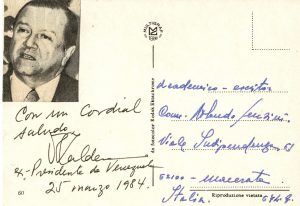 Con un Cordial
saludo,
R Caldera
ex-Presidente de Venezuela
25 marzo 1984.
60
MULTIGRAF
da Fotocolor Kodak Ektachrome
académico - escritor
Comm. Orlando
Viale Indipendenza, 61
62100 - Macerata
Italia.
Riproduzione vietata